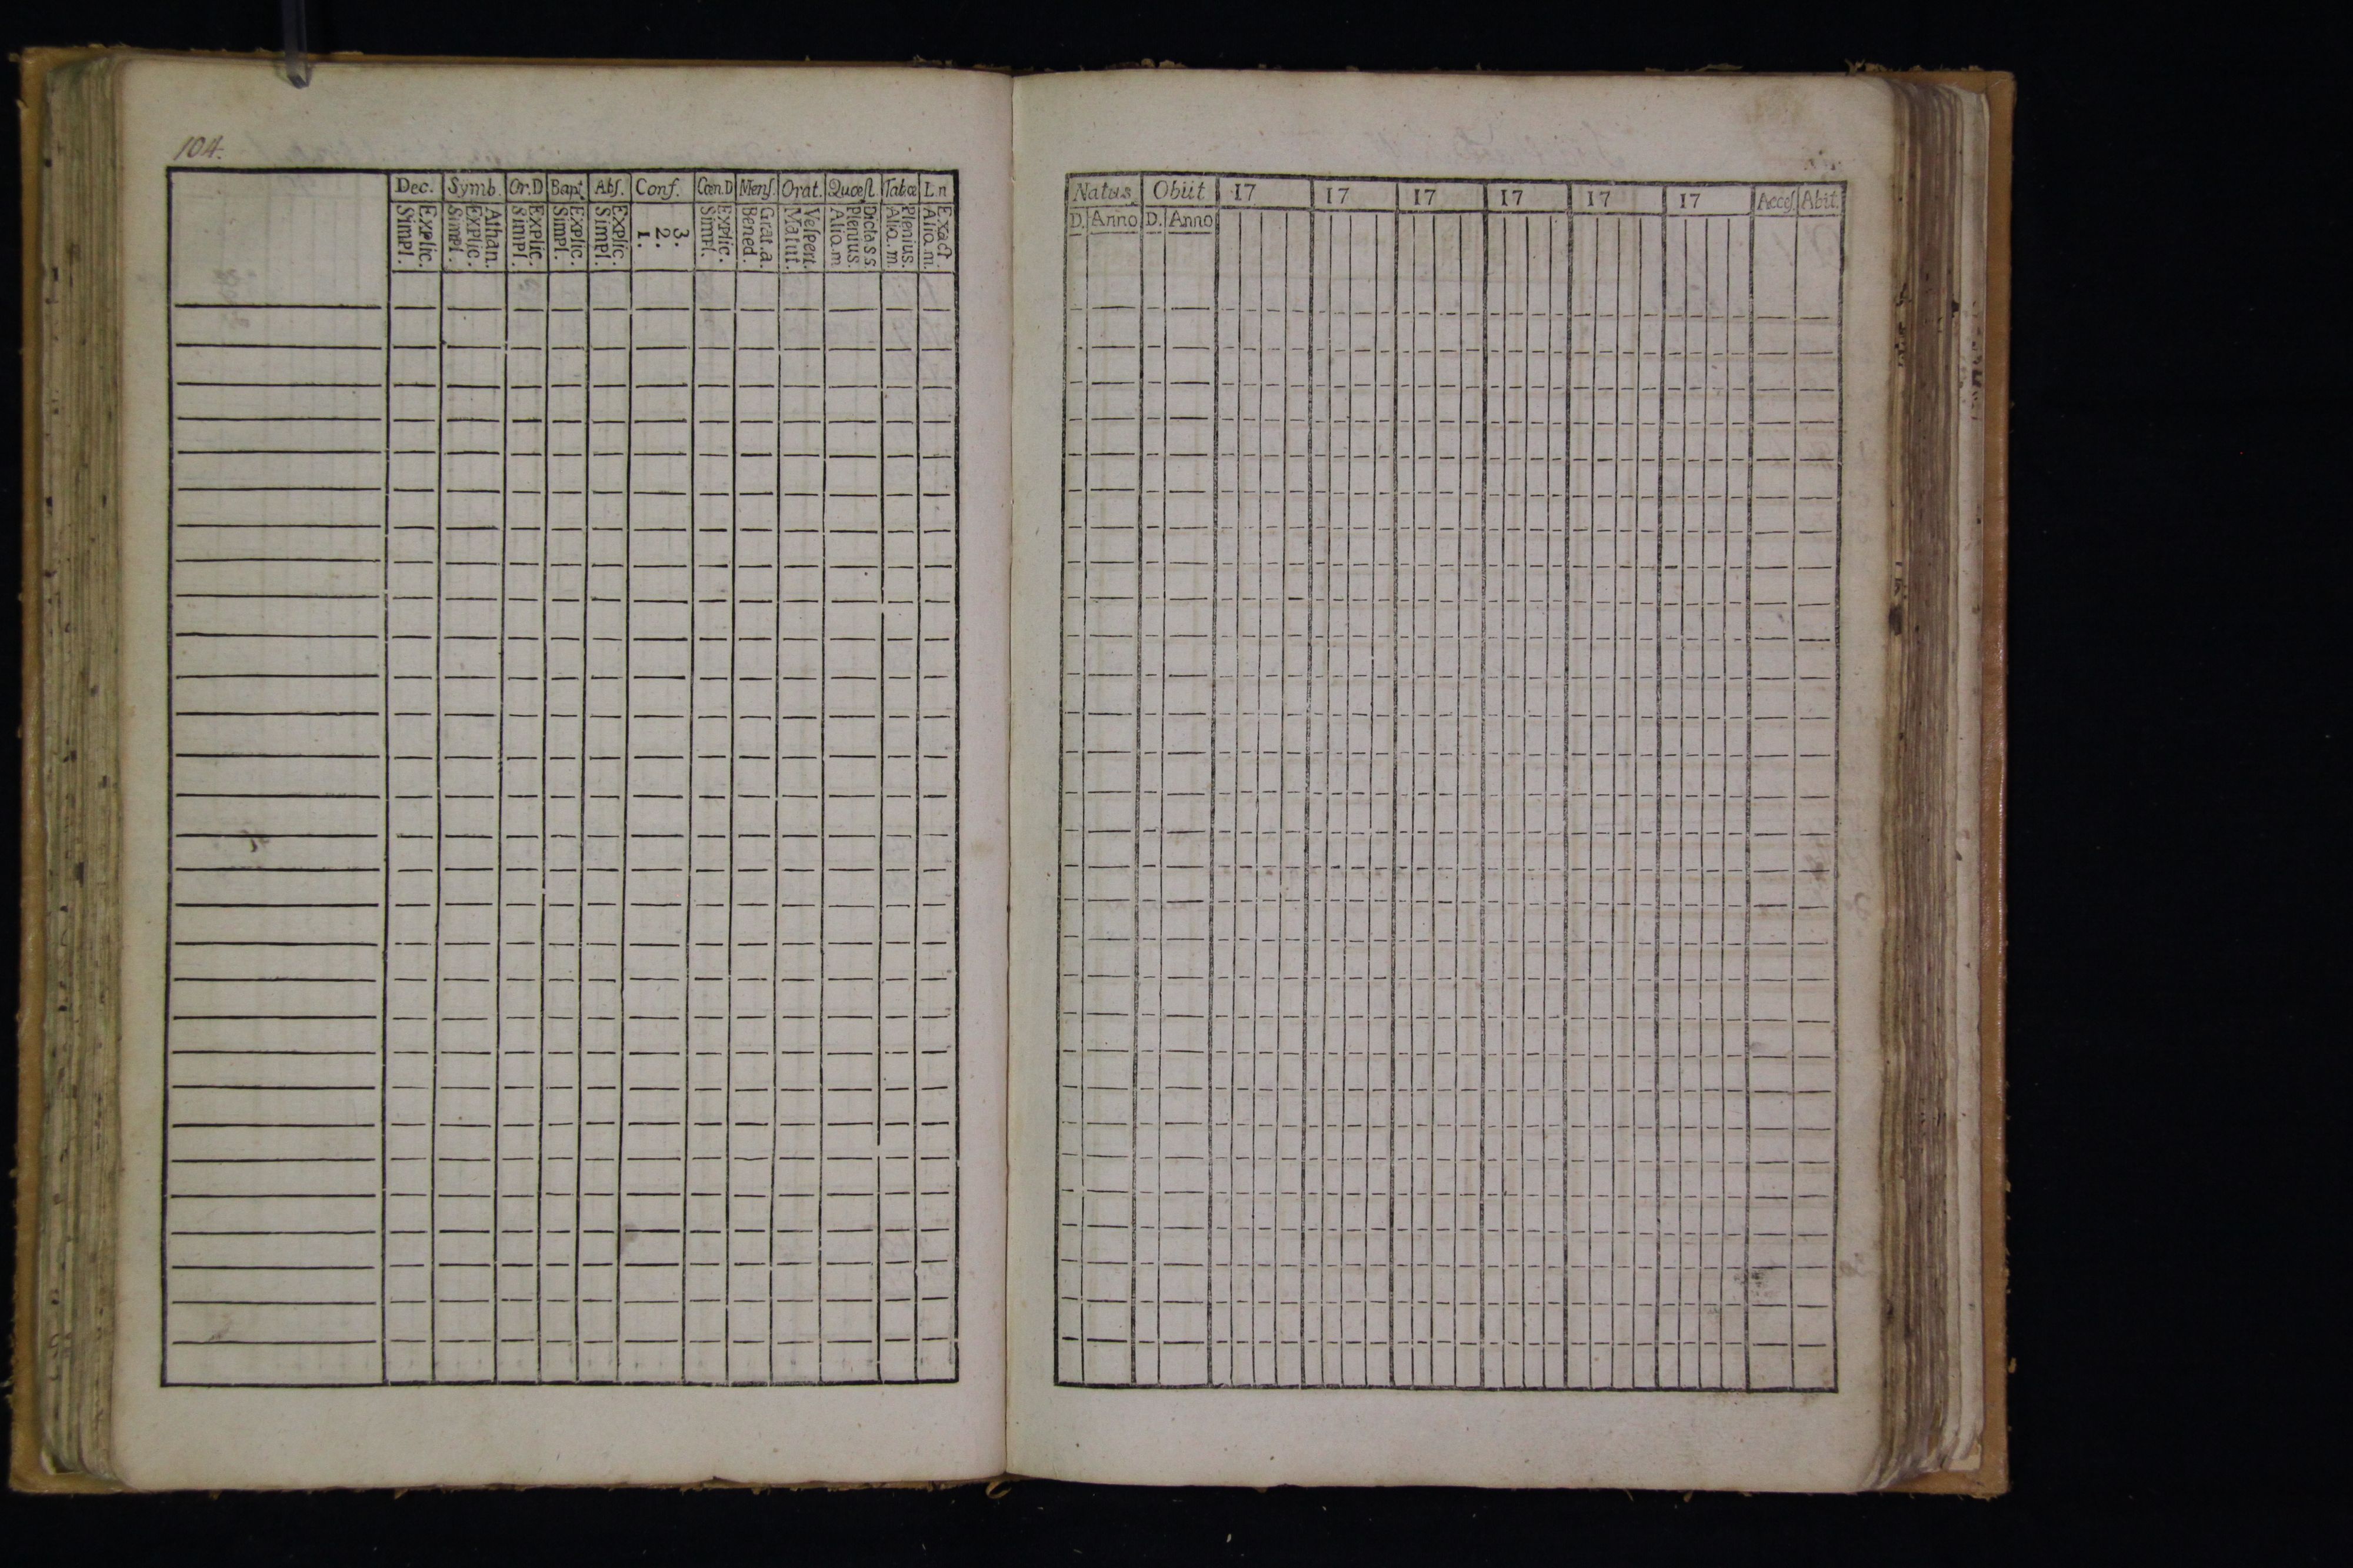 104.
Dec. Symb. Or.D Bapt. Abſ. Conf. Cœn.D Menſ. Orat. Quæſt. Tabæ L.n
Simpl. Explic. Simpl. Explic. Athan. Simpl. Explic. Simpl. Explic. Simpl. Explic. 1. 2. 3. Simpl. Explic. Bened. Grat.a. Matut. Veſpert. Aliq.m. Plenius. Dicta s s. Aliq.m. Plenius. Aliq.m. Exact.
Natus Obiit 17 17 17 17 17 17 Acceſ Abit.
D. Anno D. Anno